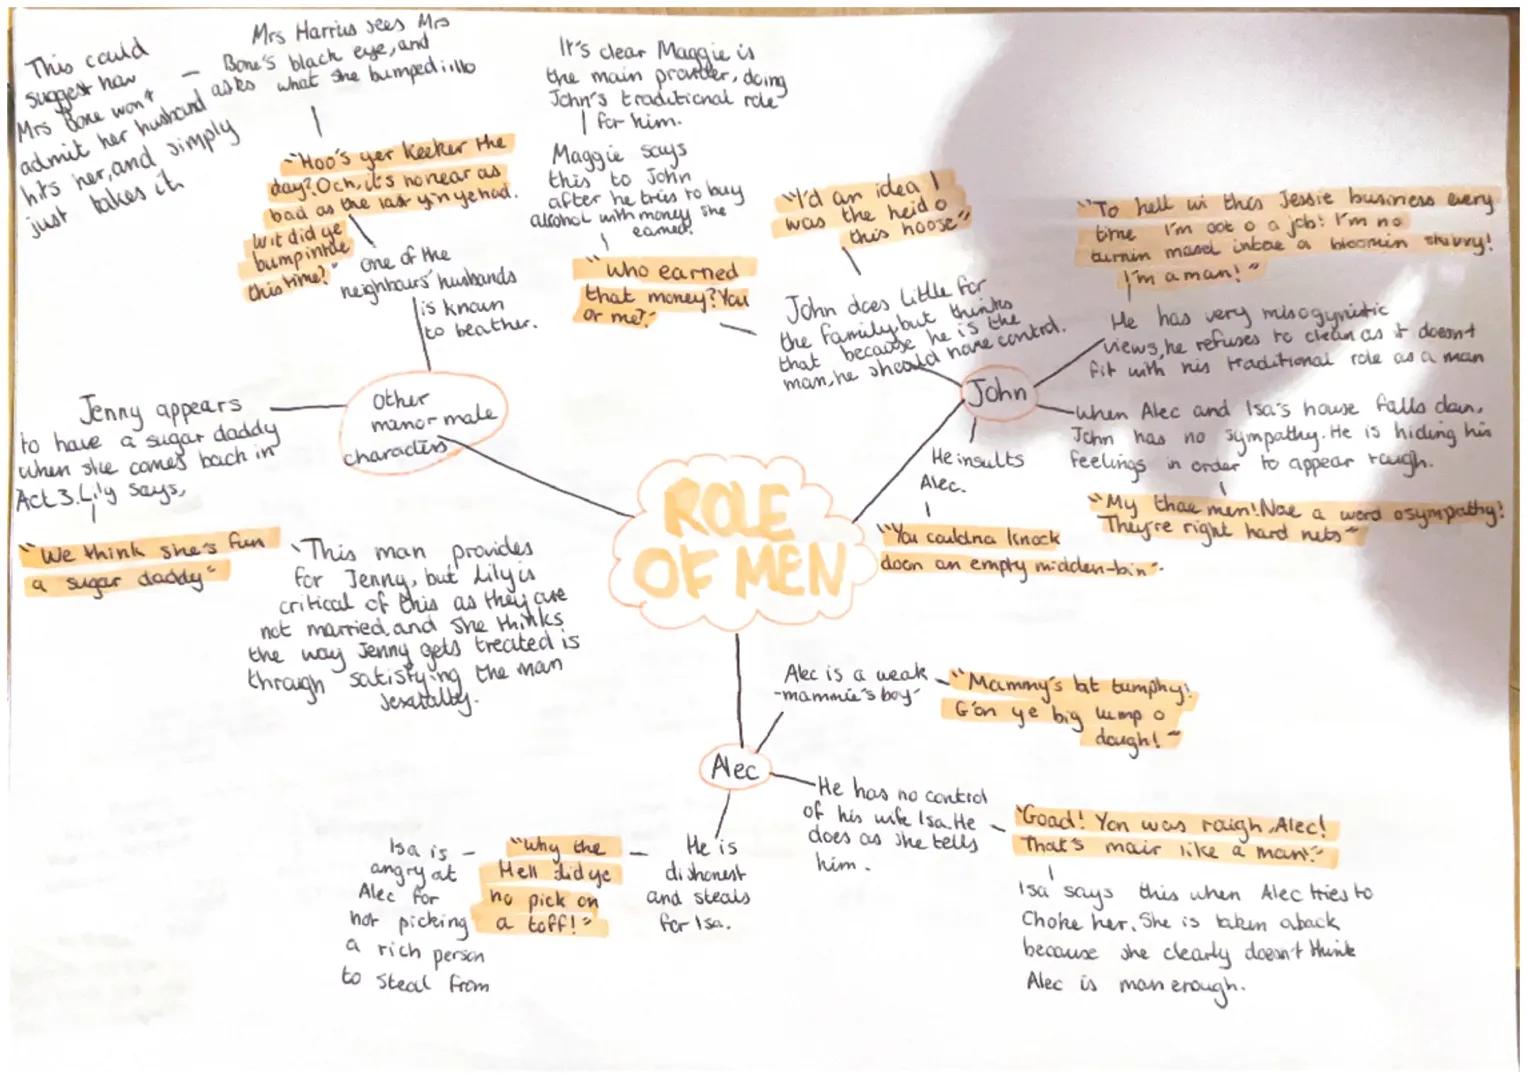 This could
suggest how
Mrs Bone won't
admit her husband
hits her, and simply
just takes it
Mrs Harris sees Mrs
Bone's black eye, and
asks what she bumped into
"Hoo's yer keeker the
day? Och, it's no near as
bad as the last yin ye had.
Wit did ye
bump intae
this time?"
One of the
neighbours' husbands
is known
to beat her.
It's clear Maggie is
the main provider, doing
John's traditional role
for him.
Maggie says
this to John
after he tries to buy
alcohol with money she
earned.
"Who earned
that money? You
or me?"
"I'd an idea I
was the heid o
this hoose"
John does little for
the family but thinks
that because he is the
man, he should have control.
"To hell wi this Jessie business every
time I'm oot o a job! I'm no
turnin masel intae a bloomin skivvy!
I'm a man!"
He has very misogynistic
views, he refuses to clean as it doesn't
fit with his traditional role as a man
John
When Alec and Isa's house falls down,
John has no sympathy. He is hiding his
feelings in order to appear tough.
"My thae men! Nae a word o sympathy!
They're right hard nuts"
He insults
Alec.
"You couldna knock
doon an empty midden-bin".
Other
minor male
characters
Jenny appears
to have a sugar daddy
when she comes back in
Act 3. Lily says,
"We think she's fun
a sugar daddy"
This man provides
for Jenny, but Lily is
critical of this as they are
not married, and she thinks
the way Jenny gets treated is
through satisfying the man
sexually.
ROLE
OF MEN
Alec is a weak
"mammie's boy"
"Mammy's bit tumphy!
G'on ye big lump o
dough!"
Alec
He has no control
of his wife Isa. He
does as she tells
him.
"Goad! Yon was rough, Alec!
That's mair like a man!"
Isa says this when Alec tries to
choke her. She is taken aback
because she clearly doesn't think
Alec is man enough.
He is
dishonest
and steals
for Isa.
"Why the
Hell did ye
no pick on
a toff!"
Isa is
angry at
Alec for
not picking
a rich person
to steal from